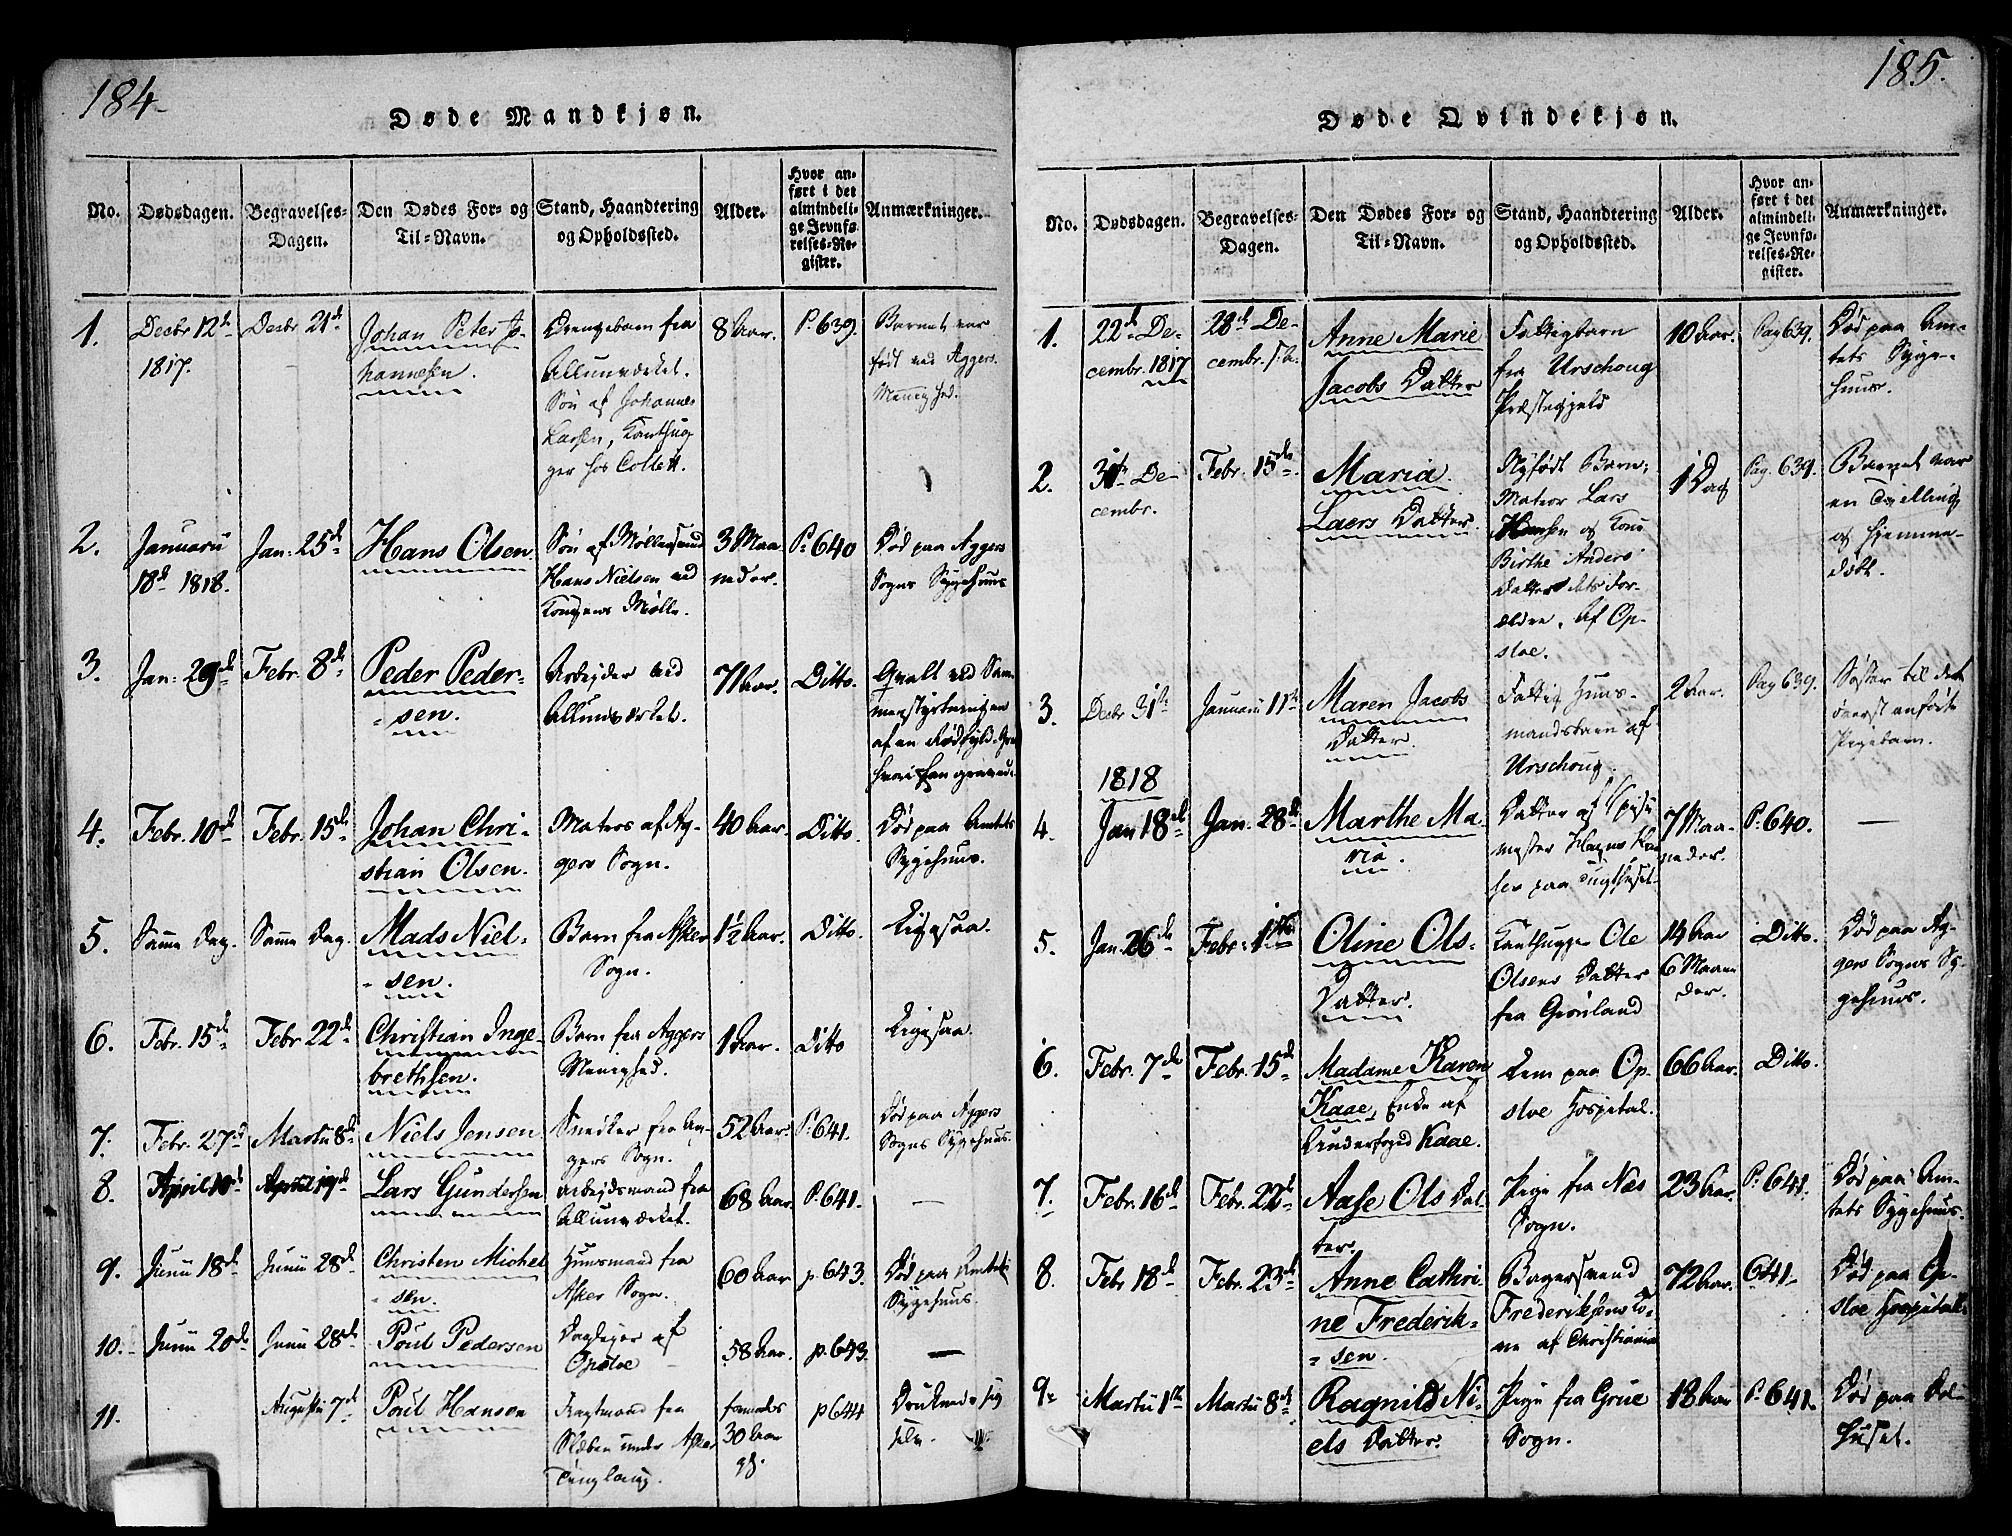 184.
Døde Mandkjøn.
No.
Dødsdagen.
Begravelses-
Dagen.
Den Dødes For- og
Til-Navn.
Stand, Haandtering
og Opholdssted.
Alder.
Hvor an-
ført i det
almindeli-
ge Jevnfø-
relses-Re-
gister.
Anmærkninger.
1.
Decbr 12te
1817.
Decbr 21de
Johan Peter Jo-
hannesen.
Drengebarn fra
Allunværket.
Søn af Johannes
Larsen, Kanthug
ger hos Collett.
8 Aar.
P. 639.
Barnet var
født ved Aggers
Menighed.
2.
Januarii
18de 1818.
Jan: 25de
Hans Olsen
Søn af Møllersvend
Hans Nielsen ved
Kongens Mølle.
3 Maa
neder.
P. 640
Død paa Aggers
Sogns Sygehuus
3.
Jan: 29de
Febr. 8de
Peder Peder-
sen.
Arbejder ved
Allunværket.
71 Aar.
Ditto.
Qvalt ved Sam-
menstyrtningen
af en
hvori han gravede.
4.
Febr. 10de
Febr. 15de
Johan Chri-
stian Olsen.
Matros af Ag-
gers Sogn.
40 Aar.
Ditto.
Død paa Amtets
Sygehuus.
5.
Samme Dag.
Samme Dag.
Mads Niel-
sen.
Barn fra Asker
Sogn.
1½ Aar.
Ditto.
Ligesaa.
6.
Febr. 15de
Febr 22de
Christian Inge-
brethsen.
Barn fra Aggers
Menighed.
1 Aar.
Ditto
Ligesaa.
7.
Febr. 27de
Martii 8de
Niels Jensen
Snedker fra Ag-
gers Sogn.
52 Aar.
P. 641.
Død paa Aggers
Sogns Sygehuus.
8.
April 10de
April 19de
Lars Gundersen
Arbejdsmand fra
Allunværket.
68 Aar
P. 641.
—
9.
Junii 18de
Junii 28de
Christen Michel
sen.
Huusmand fra
Asker Sogn.
60 Aar
p. 643.
Død paa Amtets
Sygehuus.
10.
Junii 20de
Junii 28de
Poul Pedersen
Daglejer af
Opsloe
58 Aar.
p. 643.
—
11.
Augustii 7de
Poul Hansen
Fragtmand fra
under Asker
Tinglaug.
30 Aar
gl.
p 644
Druknede sig
selv.
185.
Døde Qvindekjøn.
No.
Dødsdagen.
Begravelses-
Dagen.
Den Dødes For- og
Til-Navn.
Stand, Haandtering
og Opholdssted.
Alder.
Hvor an-
ført i det
almindeli-
ge Jevnfø-
relses-Re-
gister.
Anmærkninger.
1.
22de De-
cembr. 1817
28de De-
cembr.
Anne Marie
Jacobs Datter
Fattigbarn
fra Urschoug
Præstegjeld
10 Aar.
Pag 639.
Død paa Am-
tets Syge-
huus.
2.
31te De-
cembr.
Febr. 15de
Maria
Laers Datter.
Nyfødt Barn;
Matros Lars
Hansen og Kone
Birthe Anders
Datter dets For-
ældre. Af Op-
sloe.
1 Dag
Pag. 639.
Barnet var
en Tvilling
og hjemme-
døbt.
3.
Decbr 31te
Januarii 11te
Maren Jacobs
Datter.
Fattig Huus-
mandsbarn af
Urschoug.
2 Aar.
Pag 639.
Søster til det
øverst anførte
Pigebarn.
4.
1818
Jan 18de
Jan. 28de
Marthe Ma-
ria.
Datter af Spise
mester
paa Tugthuset.
7 Maa-
neder.
P. 640.
—
5.
Jan. 26de
Febr. 1ste
Oline Ols-
Datter.
Kanthugger Ole
Olsens Datter
fra Grønland
14 Aar
6 Maane
der.
Ditto.
Død paa Ag-
gers Sogns Sy-
gehuus.
6.
Febr. 7de
Febr. 15de
Madame Karen
Kaae, Enke af
Underfoged Kaae.
Lem paa Op-
sloe Hospital.
66 Aar.
Ditto.
7.
Febr. 16de
Febr. 22de
Aase Ols Dat-
ter.
Pige fra Næs
Sogn.
23 Aar.
P. 641.
Død paa Am-
tets Sygehuus.
8.
Febr 18de
Febr. 23de
Anne Cathri-
ne Frederik-
sen.
Bagersvend
Frederiksens Ko-
ne af Christiania
72 Aar.
641.
Død paa Op-
sloe Hospital.
9.
Martii 1ste
Martii 8de
Ragnild Ni-
els Datter.
Pige fra Grue
Sogn.
18 Aar
P. 641.
Død paa Dol-
huset.